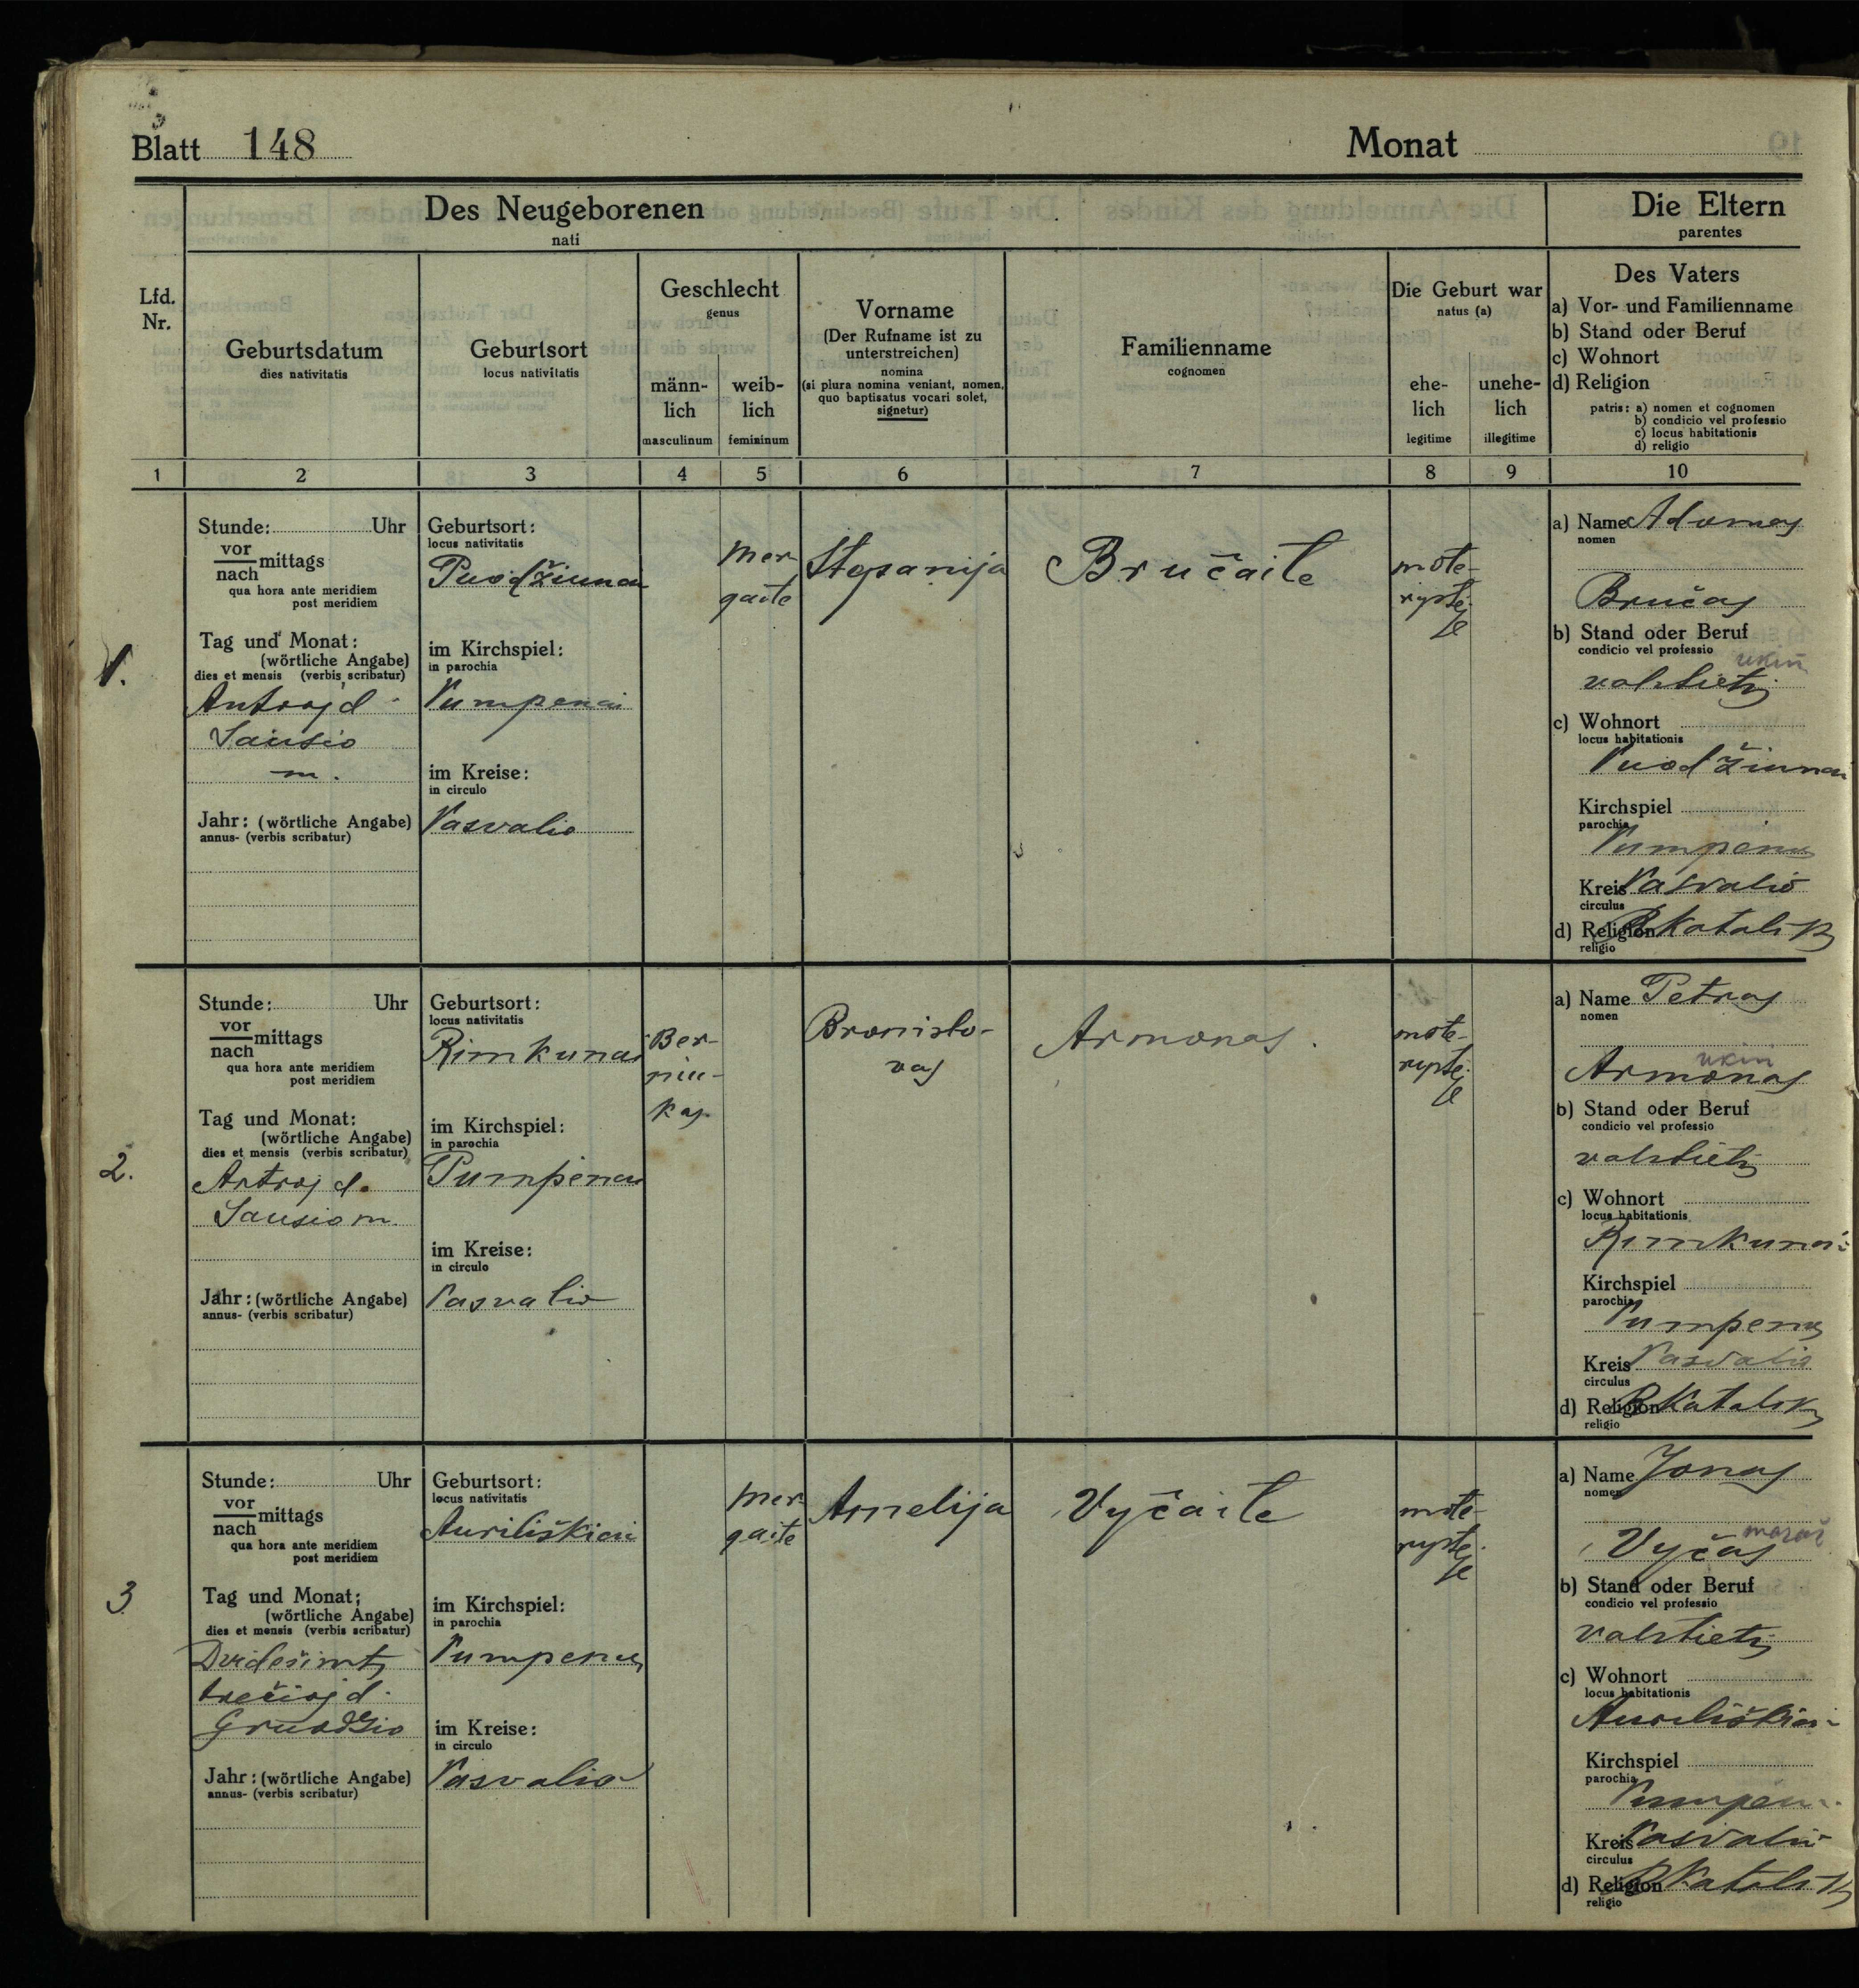 Blatt 148
Monat
Des Neugeborenen
nati
Die Eltern
parentes
Lfd.
Nr.
Geburtsdatum
dies nativitatis
Geburtsort
locus nativitatis
Geschlecht
genus
männ-
lich
masculinum
weib-
lich
femininum
Vorname
(Der Rufname ist zu
unterstreichen)
nomina
(si plura nomina veniant, nomen,
quo baptisatus vocari solet,
signetur)
Familienname
cognomen
Die Geburt war
natus (a)
ehe-
lich
legitime
unehe-
lich
illegitime
Des Vaters
a) Vor- und Familienname
b) Stand oder Beruf
c) Wohnort
d) Religion
patris: a) nomen et cognomen
b) condicio vel professio
c) locus habitationis
d) religio
1 2 3 4 5 6 7 8 9 10
1.
Stunde: Uhr
vor
nach mittags
qua hora ante meridiem
post meridiem
Tag und Monat:
(wörtliche Angabe)
dies et mensis (verbis scribatur)
Antroj d.
Sausio
m.
Jahr: (wörtliche Angabe)
annus- (verbis scribatur)
Geburtsort:
locus nativitatis
Puodžiunai
im Kirchspiel:
in parochia
Pumpenai
im Kreise:
in circulo
Pasvalio
Mer-
gaite
Stepanija
Bručaite
mote-
rystė-
je
a) Name Adomas
nomen
Bručas
b) Stand oder Beruf
condicio vel professio
ukin
valstietis
c) Wohnort
locus habitationis
Puodžiunai
Kirchspiel
parochia
Pumpenai
Kreis Pasvalio
circulus
d) Religion R Katalik
religio
2.
Stunde: Uhr
vor
nach mittags
qua hora ante meridiem
post meridiem
Tag und Monat:
(wörtliche Angabe)
dies et mensis (verbis scribatur)
Antroj d.
Sausio m.
Jahr: (wörtliche Angabe)
annus- (verbis scribatur)
Geburtsort:
locus nativitatis
Rimkunai
im Kirchspiel:
in parochia
Pumpenai
im Kreise:
in circulo
Pasvalio
Ber-
niu-
kas
Bronislo-
vas
Armonas.
mote-
rystė-
je
a) Name Petras
nomen
ukin
Armonas
b) Stand oder Beruf
condicio vel professio
valstietis
c) Wohnort
locus habitationis
Rimkunai
Kirchspiel
parochia
Pumpenai
Kreis Pasvalio
circulus
d) Religion R Katalik
religio
3
Stunde: Uhr
vor
nach mittags
qua hora ante meridiem
post meridiem
Tag und Monat;
(wörtliche Angabe)
dies et mensis (verbis scribatur)
Dvidešimts
trečioj d.
Gruodžio
Jahr: (wörtliche Angabe)
annus- (verbis scribatur)
Geburtsort:
locus nativitatis
Auriliškiai
im Kirchspiel:
in parochia
Pumpenai
im Kreise:
in circulo
Pasvalio
Mer-
gaite
Amelija
Vyčaite
mote-
rystė-
je
a) Name Jonas
nomen
mažaž
Vyčas
b) Stand oder Beruf
condicio vel professio
valstietis
c) Wohnort
locus habitationis
Auriliškiai
Kirchspiel
parochia
Pumpenai
Kreis Pasvalio
circulus
d) Religion R Katalik
religio